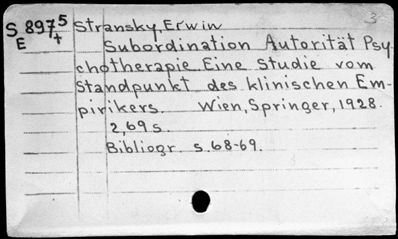 3
S 8975 Stransky, Erwin
E + Subordination Autorität Psy-
chotherapie Eine Studie vom
Standpunkt des klinischen Em-
pirikers. Wien, Springer, 1928.
2,69 s.
Bibliogr. s. 68-69.